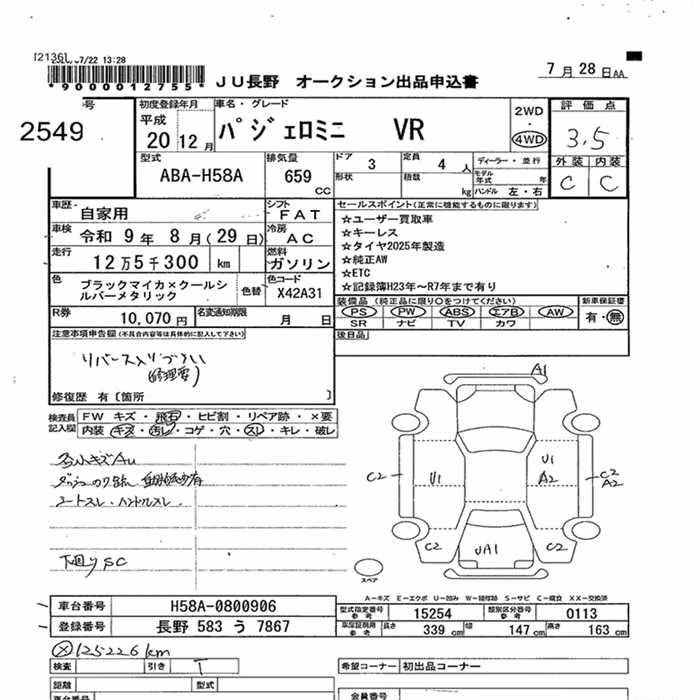 [2136]
07/22 13:28
*9000012755*
JU長野 オークション出品申込書
7月28日AA
号
2549
初度登録年月
平成
20 12月
車名・グレード
パジェロミニ VR
2WD
4WD
評価点
3.5
外装 内装
C C
型式
ABA-H58A
排気量
659
CC
ドア 3
形状
定員 4 人
積載 kg
ディーラー・並行
モデル年式 年
ハンドル 左・右
車歴
自家用
シフト
FAT
セールスポイント(正常に機能するものに限ります)
☆ユーザー買取車
☆キーレス
☆タイヤ2025年製造
☆純正AW
☆ETC
☆記録簿H23年〜R7年まで有り
車検 令和 9年 8月(29日)
冷房
AC
走行
12万5千300 km
燃料
ガソリン
色
ブラックマイカ×クールシルバーメタリック
色替
色コード
X42A31
装備品(純正品に限り○をつけてください)
PS PW ABS エアB AW
SR ナビ TV カワ
新車保証書
有・無
R券
10,070 円
名変通知期限
月 日
後日品
注意事項申告欄(不具合内容等は具体的に記入して下さい)
リバース入りづらい
(修理要)
修復歴 有[箇所 ]
検査員記入欄
FW キズ・飛石・ヒビ割・リペア跡・×要
内装 キズ・汚レ・コゲ・穴・スレ・キレ・破レ
小キズAu
シートスレ・ハンドルスレ
下廻りSC
A1
C2
U1
U1
A2
C2
A2
C2
UA1
C2
スペア
A-キズ E-エクボ U-凹み W-補修跡 S-サビ C-腐食 XX-交換済
車台番号
H58A-0800906
型式指定番号
参考
15254
類別区分番号
参考
0113
登録番号
長野 583 う 7867
車庫証明用
参考
長さ 339 cm
幅 147 cm
高さ 163 cm
Ⓧ125226km
検査
引き
T
希望コーナー
初出品コーナー
距離
型式
車台番号
会員番号